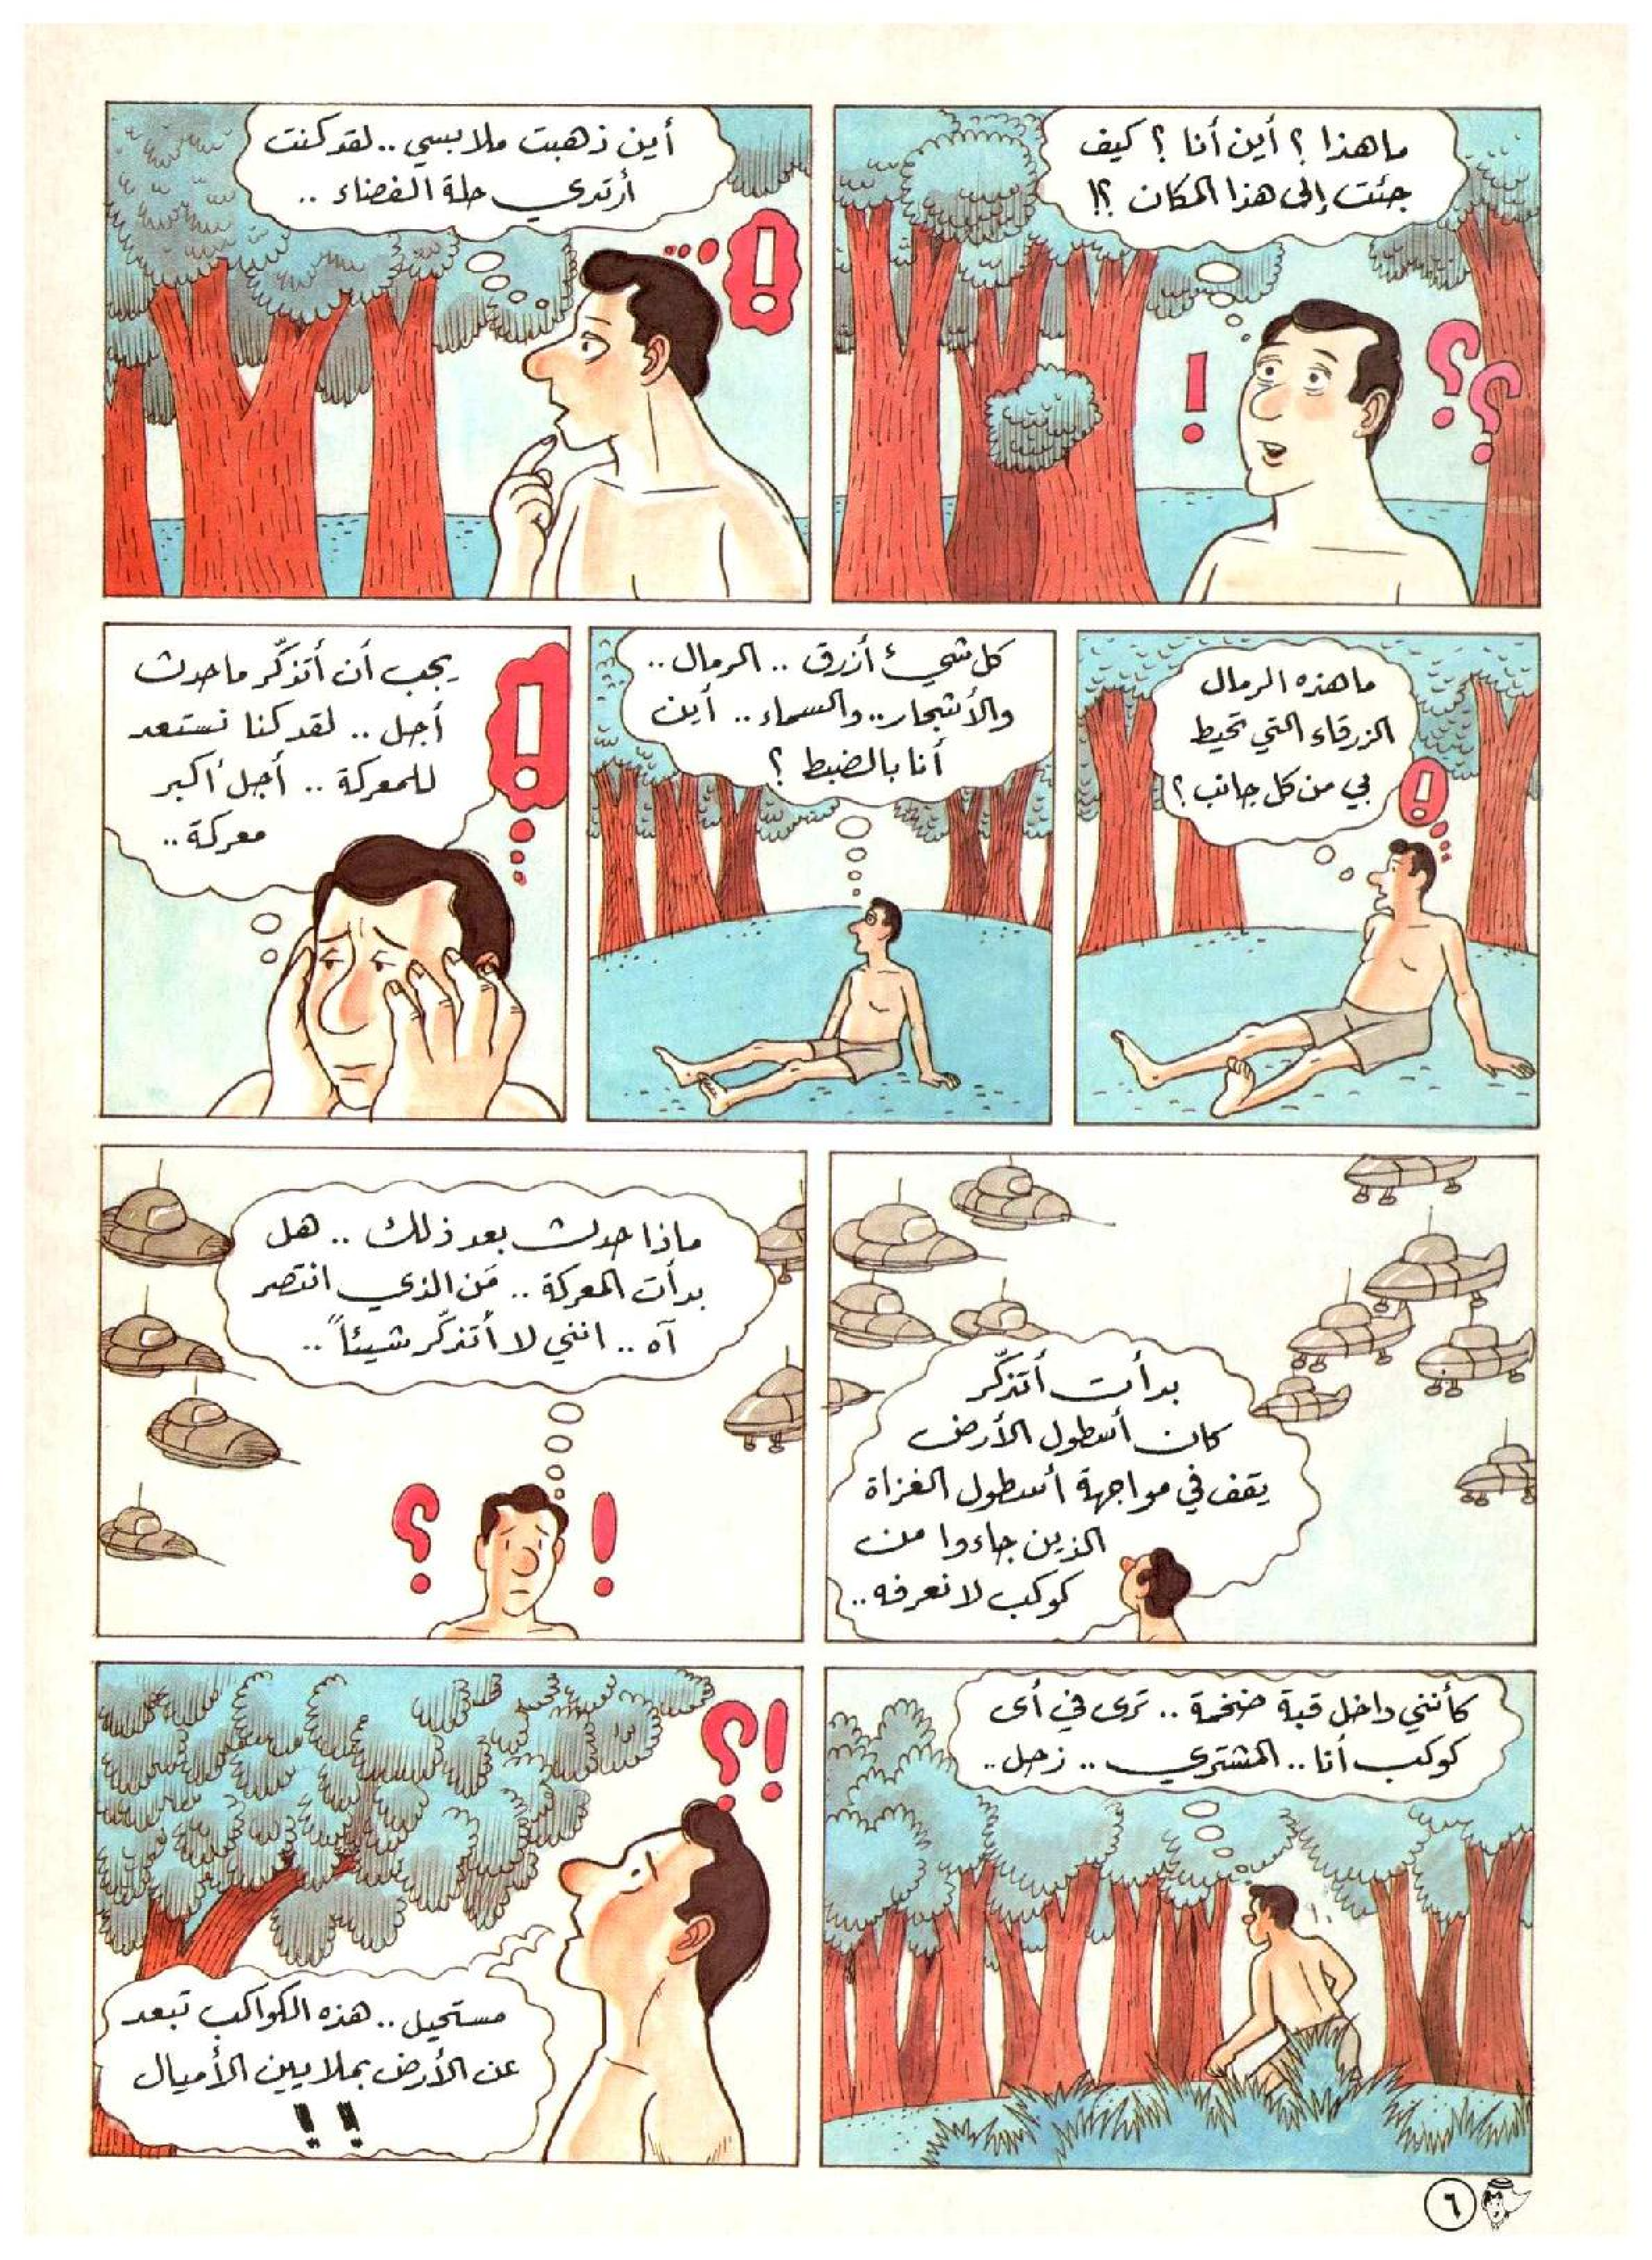 ما هذا ؟ أين أنا ؟ كيف
جئت إلى هذا المكان ؟!
أين ذهبت ملابسي .. لقد كنت
أرتدي حلة الفضاء ..
ما هذه الرمال
الزرقاء التي تحيط
بي من كل جانب ؟
كل شيء أزرق .. الرمال ..
والأشجار .. والسماء .. أين
أنا بالضبط ؟
يجب أن أتذكّر ما حدث
أجل .. لقد كنا نستعد
للمعركة .. أجل أكبر
معركة ..
بدأت أتذكّر
كان أسطول الأرض
يقف في مواجهة أسطول الغزاة
الذين جاءوا من
كوكب لا نعرفه ..
ماذا حدث بعد ذلك .. هل
بدأت المعركة .. مَن الذي انتصر
آه .. انني لا أتذكّر شيئاً ..
كأنني داخل قبة ضخمة .. ترى في أى
كوكب أنا .. المشتري .. زحل ..
مستحيل .. هذه الكواكب تبعد
عن الأرض بملايين الأميال
!!
٦